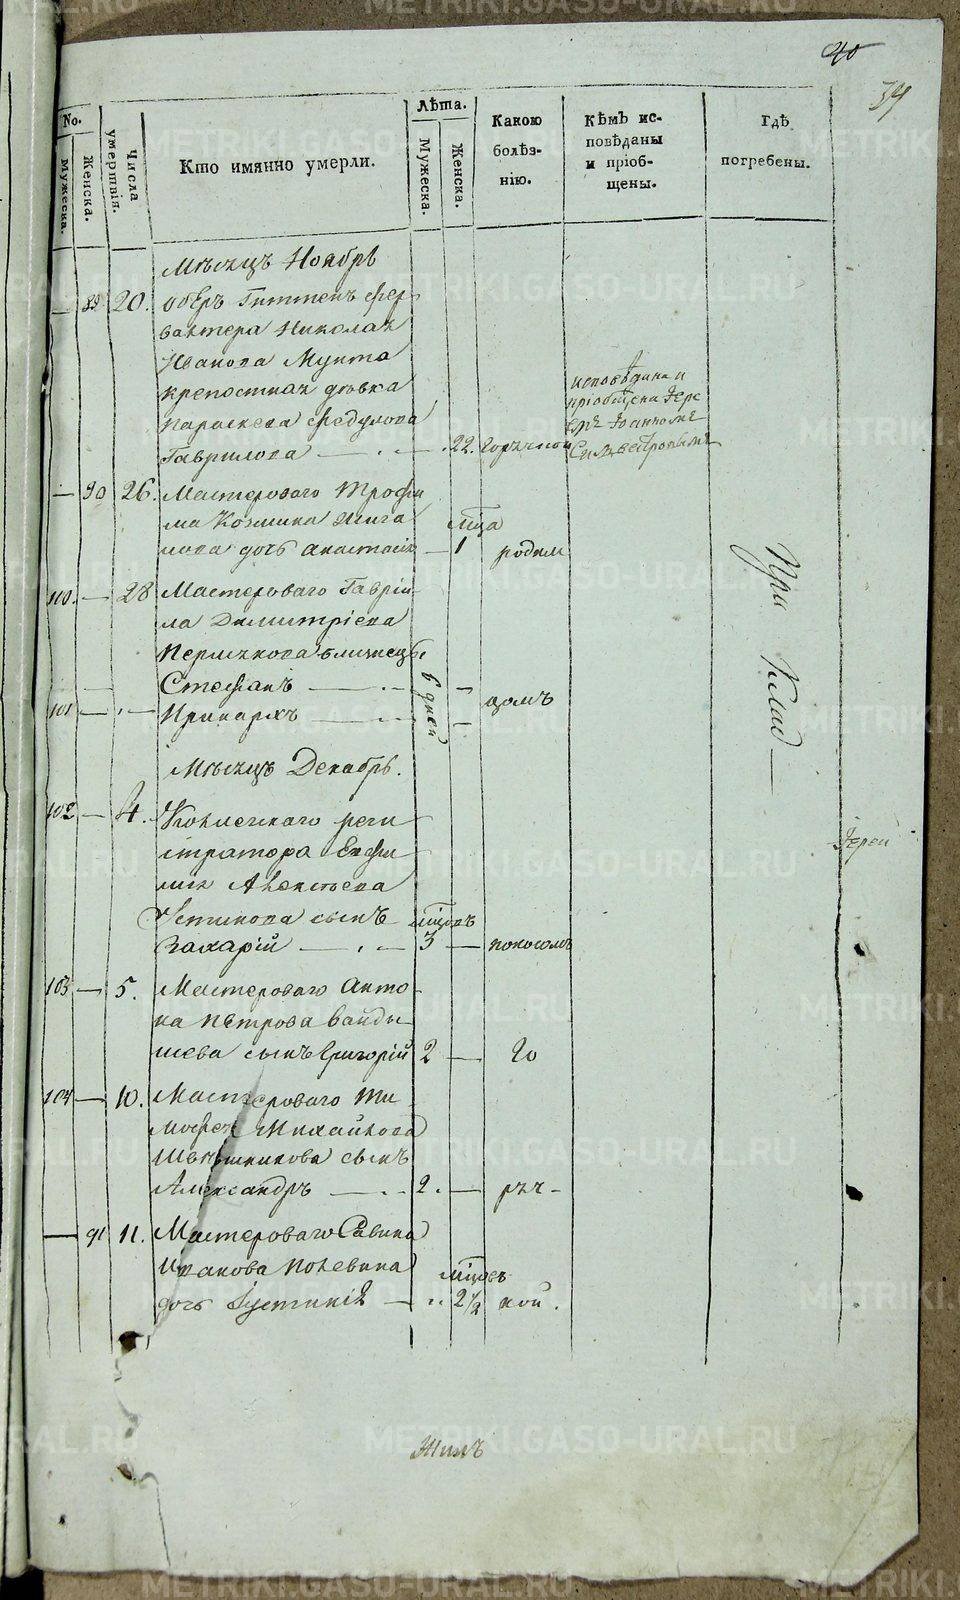 40
39
No.
Мужеска.
Женска.
Числа умертвія.
Кто имянно умерли.
Лѣта.
Мужеска.
Женска.
Какою болѣз-
нію.
Кѣмъ ис-
повѣданы
и пріоб-
щены.
Гдѣ
погребены.
Мѣсяцъ Ноябрь
— 89 20. Оберъ Гиттенъ фер
вахтера Николая
Иванова Мунта
крепостная дѣвка
Параскева Федулова
Гаврилова — 22. горячкой
исповѣдана и
пріобщена Іере
емъ Іоанномъ
Сильвестровымъ
— 90 26. Мастероваго Трофи
ма Козмина
дочь Анастасія — мца 1 родим
100. — 28 Мастероваго Гаврій-
ла Димитріева
близнецы
Стефанъ — 6 дней —
101 — Иринархъ — — цомъ
При Клад—
Мѣсяцъ Декабрь.
102 — 4. Коллежскаго реги
стратора
Авксентьева
Устинова сынъ мцовъ
Захарій — 3 — поносомъ
Іерей
103 — 5. Мастероваго Анто
на Петрова Ванды
шева сынъ Григорій 2 — го
104 — 10. Мастероваго Ти
мофея Михайлова
Меньшикова сынъ
Александръ — 2. — ряч-
— 91 11. Мастероваго Савина
Иванова Полевина мцовъ
дочь Іустинія — 2 1/2 кой.
METRIKI.GASO-URAL.RU